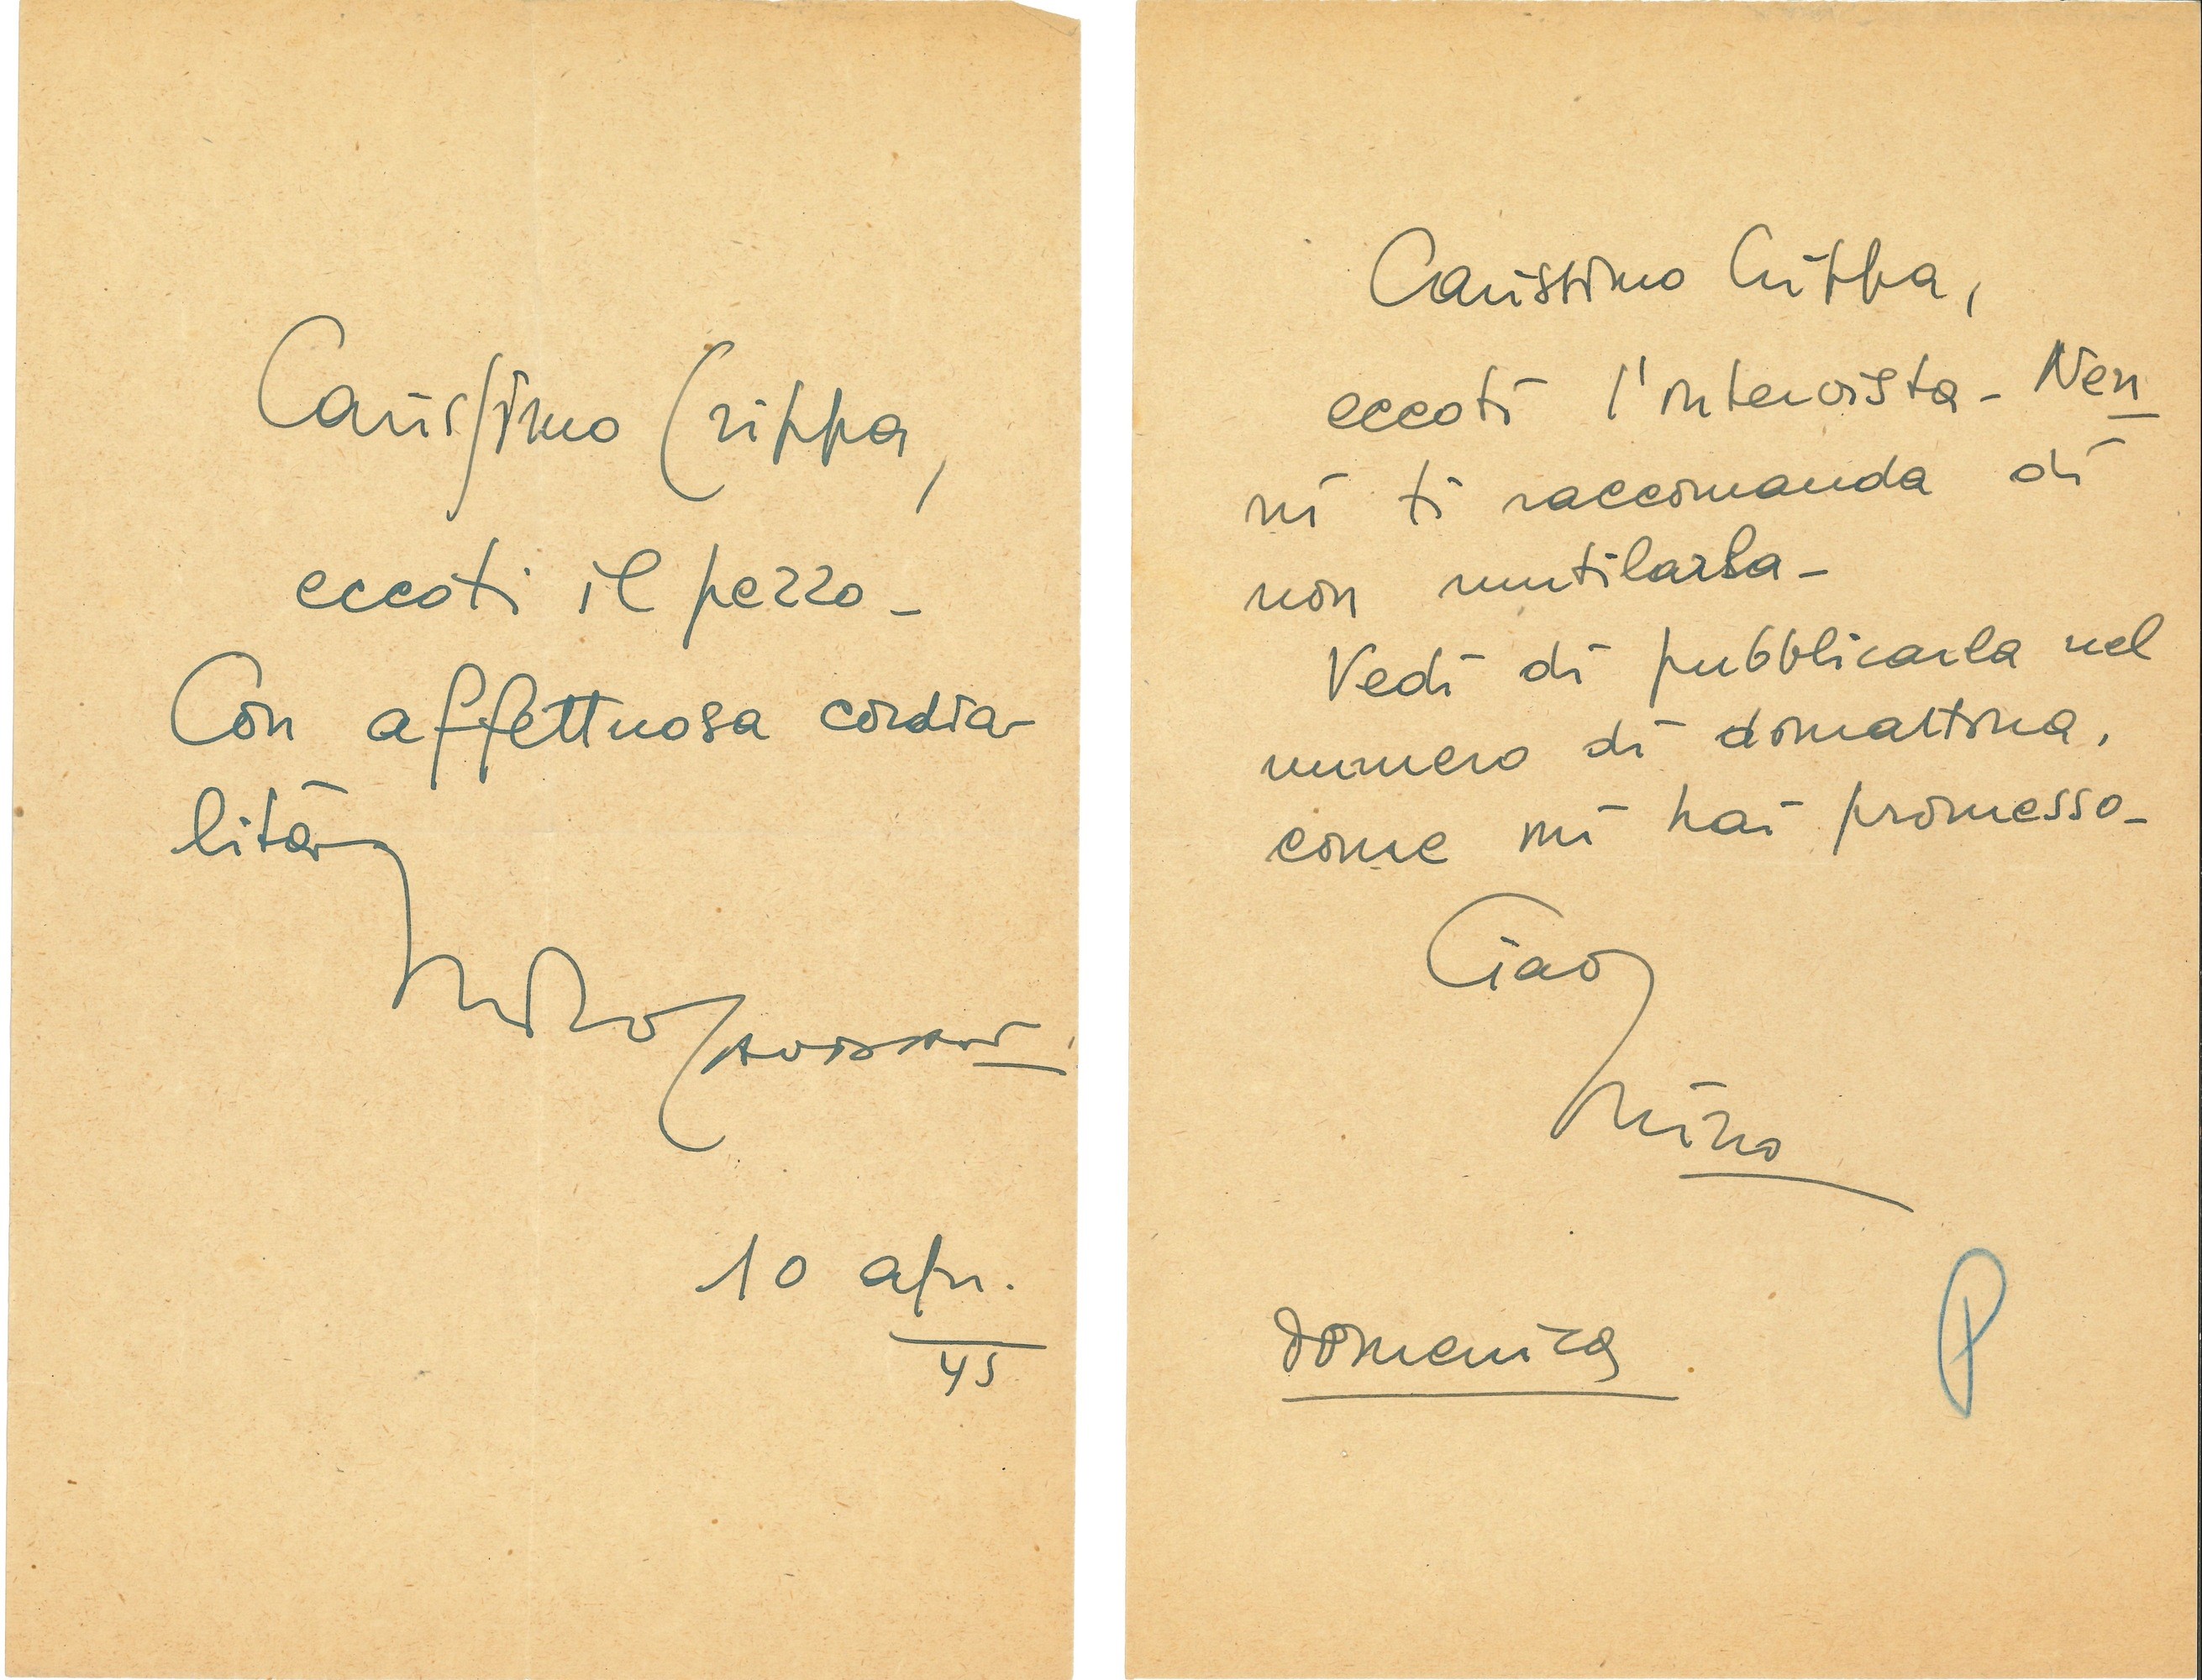 Carissimo Crippa,
eccoti il pezzo -
Con affettuosa cordia-
lità
Nino
10 apr.
45
Carissimo Crippa,
eccoti l'intervista - Nen
ni ti raccomanda di
non mutilarla -
Vedi di pubblicarla nel
numero di domattina,
come mi hai promesso -
Ciao
Nino
domenica
P